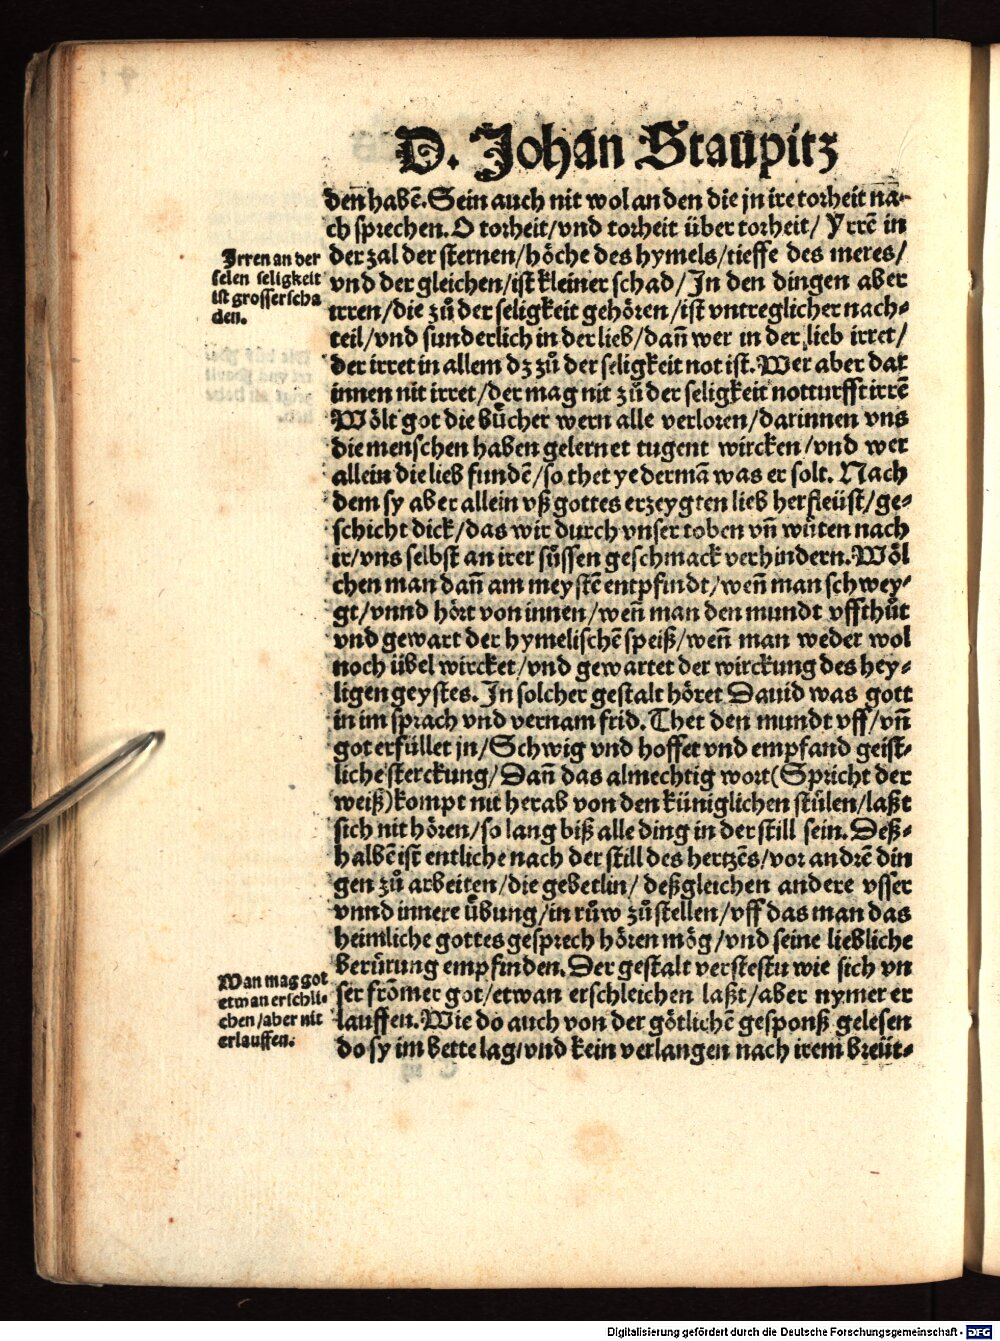 D. Johan Staupitz
deñ habẽ. Sein auch nit wol an den die jn ire torheit na-
ch sprechen. O torheit/vnd torheit über torheit/ Yrrẽ in
der zal der sternen/höche des hymels/tieffe des meres/
vnd der gleichen/ist kleiner schad/In den dingen aber
irren/die zů der seligkeit gehören/ist vntreglicher nach-
teil/vnd sunderlich in der lieb/dañ wer in der lieb irret/
der irret in allem dz zů der seligkeit not ist. Wer aber dar
innen nit irret/der mag nit zů der seligkeit notturfft irrẽ
Wölt got die bůcher wern alle verloren/darinnen vns
die menschen haben gelernet tugent wircken/vnd wer
allein die lieb fundẽ/so thet yedermã was er solt. Nach
dem sy aber allein vß gottes erzeygten lieb herfleüst/ge-
schicht dick/das wir durch vnser toben vñ wůten nach
ir/vns selbst an irer sůssen geschmack verhindern. Wöl
chen man dañ am meystẽ entpfindt/weñ man schwey-
gt/vnnd hört von innen/weñ man den mundt vffthůt
vnd gewart der hymelischẽ speiß/weñ man weder wol
noch übel wircket/vnd gewartet der wirckung des hey-
ligen geystes. In solcher gestalt höret Dauid was gott
in im sprach vnd vernam frid. Thet den mundt vff/vñ
got erfüllet jn/Schwig vnd hoffet vnd empfand geist-
liche sterckung/Dañ das almechtig wort(Spricht der
weiß)kompt nit herab von den küniglichen stůlen/laßt
sich nit hören/so lang biß alle ding in der still sein. Deß-
halbẽ ist entliche nach der still des hertzẽs/vor andrẽ din
gen zů arbeiten/die gebetlin/ deßgleichen andere vsser
vnnd innere übung/in růw zů stellen/vff das man das
heimliche gottes gesprech hören mög/vnd seine liebliche
berůrung empfinden. Der gestalt verstestu wie sich vn
ser frõmer got/etwan erschleichen laßt/aber nymer er
lauffen. Wie do auch von der götlichẽ gesponß gelesen
do sy im bette lag/vnd kein verlangen nach irem breüt-
Irren an der
selen seligkeit
ist grosser scha
den.
Man mag got
etwan erschli-
chen/aber nit
erlauffen.
Digitalisierung gefördert durch die Deutsche Forschungsgemeinschaft - DFG